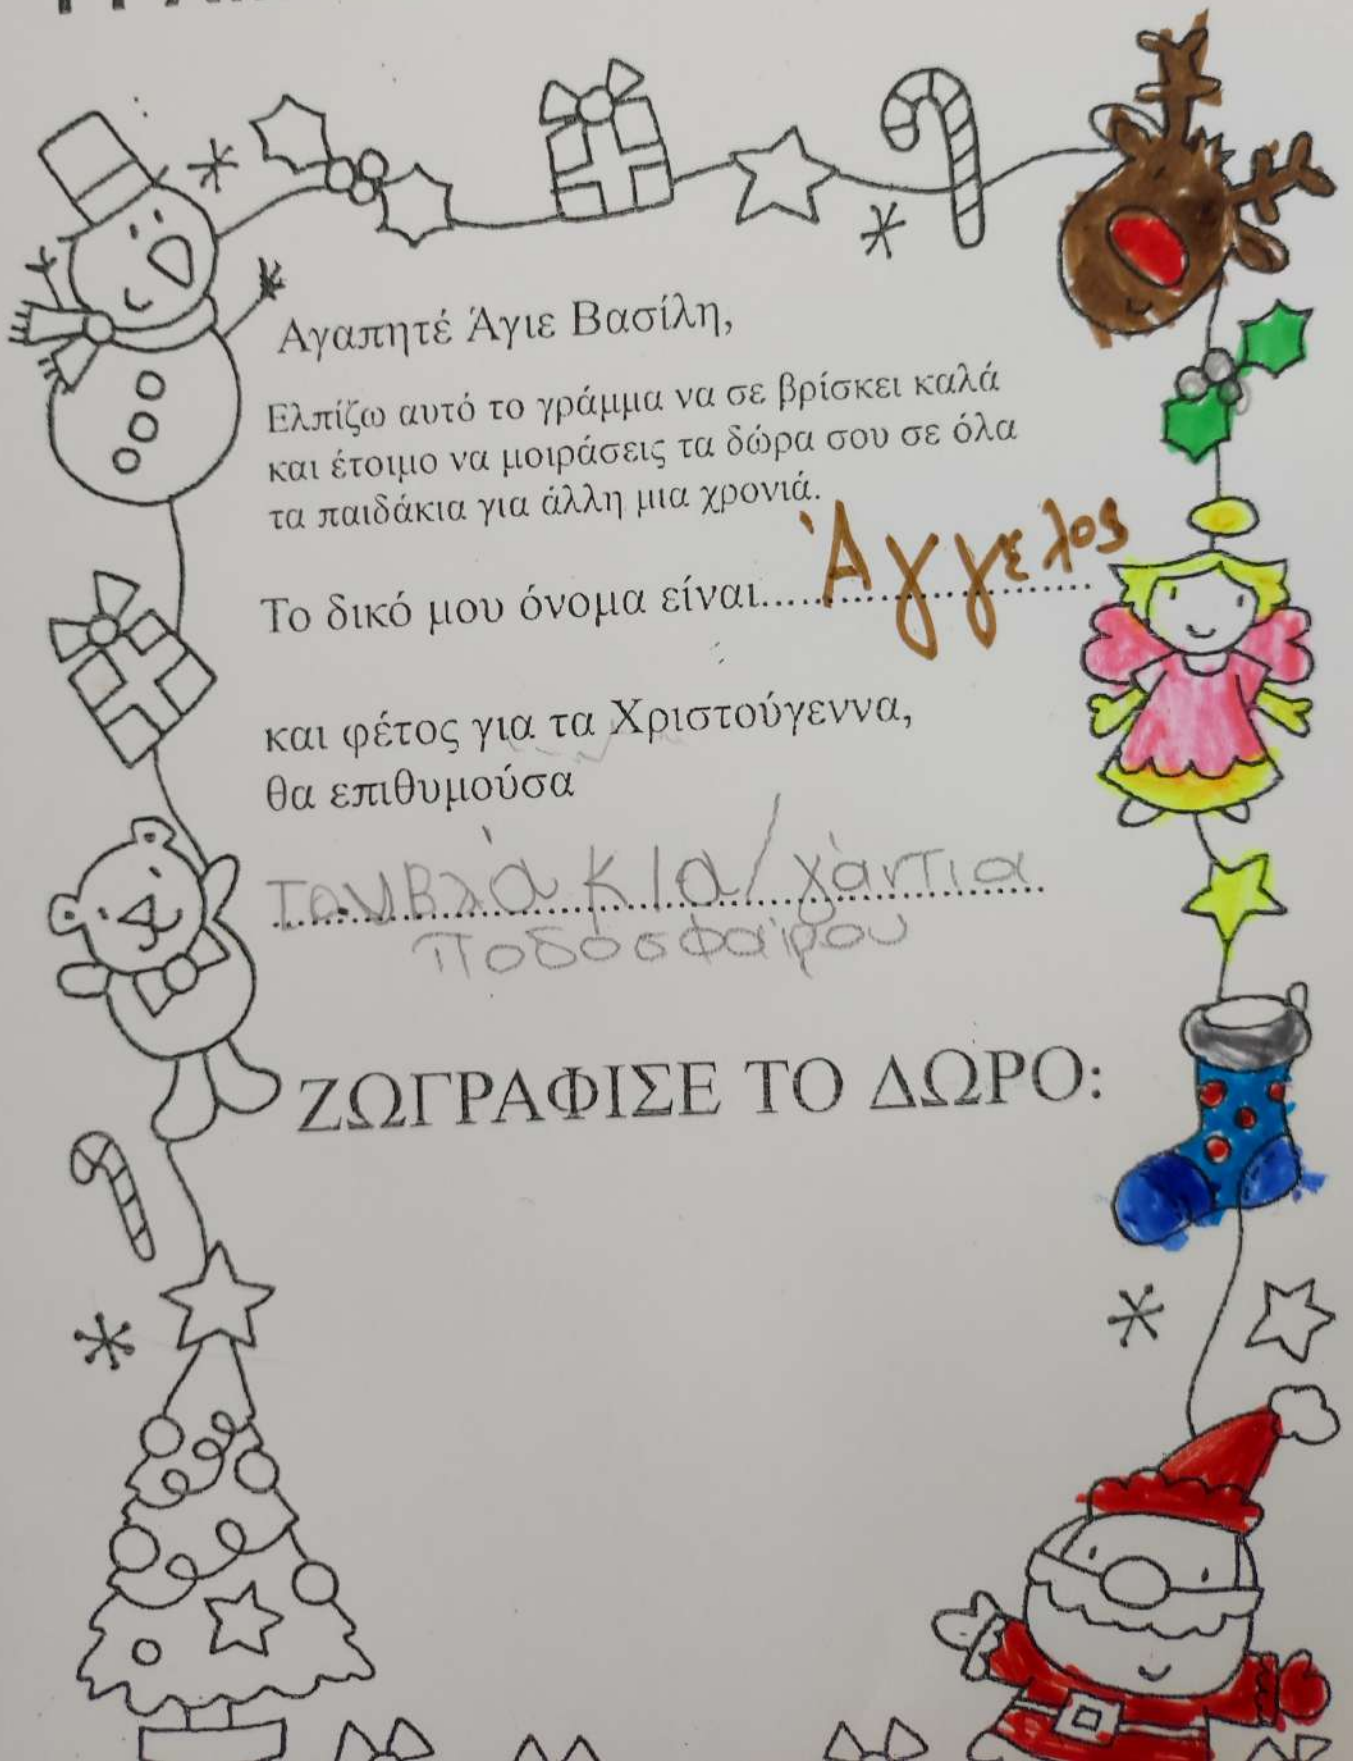 Αγαπητέ Άγιε Βασίλη,
Ελπίζω αυτό το γράμμα να σε βρίσκει καλά
και έτοιμο να μοιράσεις τα δώρα σου σε όλα
τα παιδάκια για άλλη μια χρονιά.
Το δικό μου όνομα είναι..... Άγγελος
και φέτος για τα Χριστούγεννα,
θα επιθυμούσα
Τουβλάκια/γάντια
ποδοσφαίρου
ΖΩΓΡΑΦΙΣΕ ΤΟ ΔΩΡΟ: